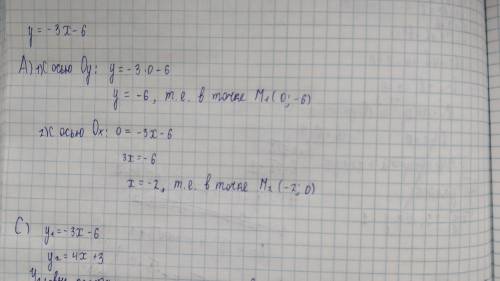 y = -3x - 6
A) 1) С осью Oy: y = -3·0 - 6
y = -6, т.е. в точке M₁(0; -6)
2) С осью Ox: 0 = -3x - 6
3x = -6
x = -2, т.е. в точке M₂(-2; 0)
C) y₁ = -3x - 6
y₂ = 4x + 3